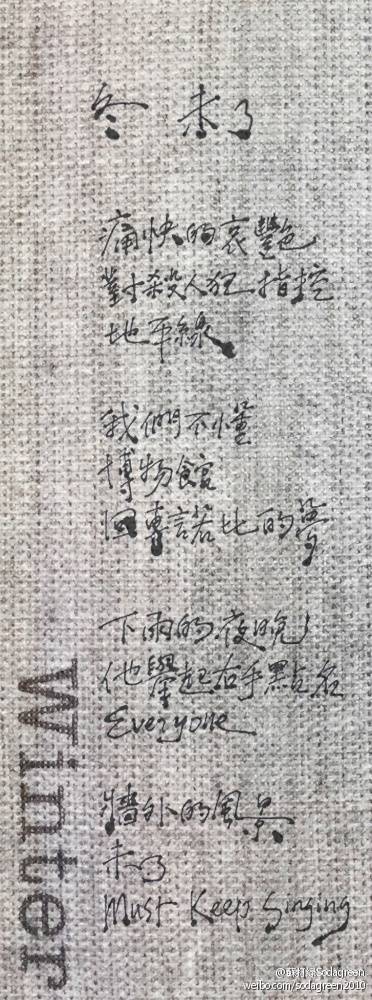 冬 未了
痛快的哀艷
對殺人狂指控
地平線
我們不懂
博物館
回車諾比的夢
下雨的夜晚
他舉起右手點名
Everyone
牆外的風景
未了
Must Keep Singing
Winter
Sodagreen
weibo.com/sodagreen2010